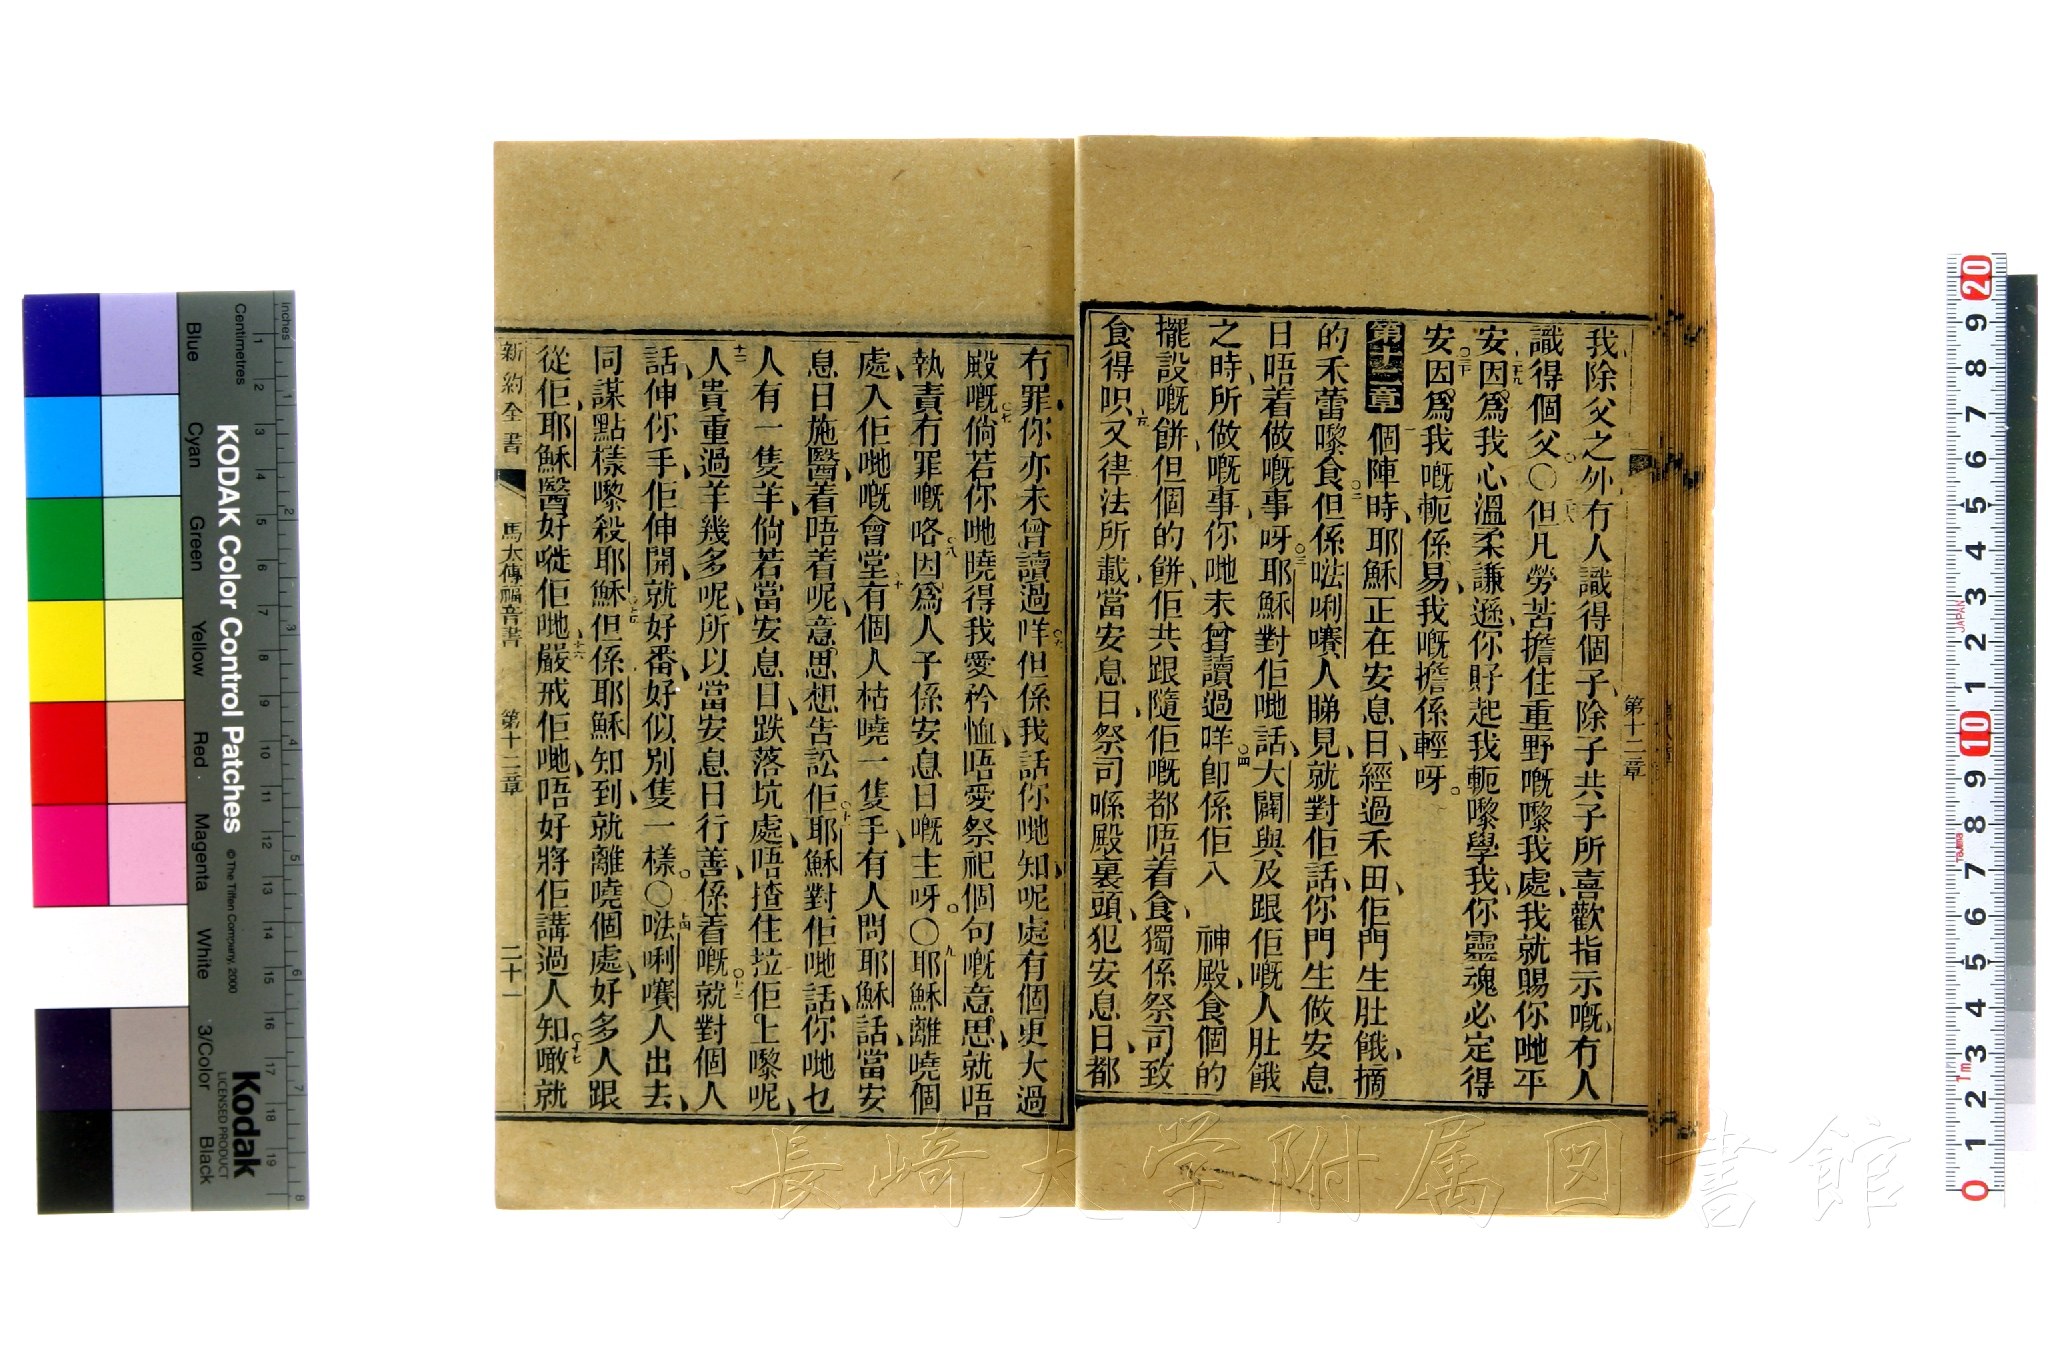 我除父之外冇人識得個子除子共子所喜歡指示嘅冇人
識得個父〇但凡勞苦擔住重野嘅嚟我處我就賜你哋平
安因爲我心溫柔謙遜你好起我軛嚟學我你靈魂必定得
安因爲我嘅軛係易我嘅擔係輕呀
第十二章 個陣時耶穌正在安息日經過禾田佢門生肚餓摘
的禾蕾嚟食但係𠵽唎㘔人睇見就對佢話你門生做安息
日唔着做嘅事呀耶穌對佢哋話大闢與及跟佢嘅人肚餓
之時所做嘅事你哋未曾讀過咩卽係佢入 神殿食個的
擺設嘅餅但個的餅佢共跟隨佢嘅都唔着食獨係祭司致
食得呮又律法所載當安息日祭司喺殿裏頭犯安息日都
冇罪你亦未曾讀過咩但係我話你哋知呢處有個更大過
殿嘅倘若你哋曉得我愛矜恤唔愛祭祀個句嘅意思就唔
執責冇罪嘅咯因爲人子係安息日嘅主呀〇耶穌離嘵個
處入佢哋嘅會堂有個人枯嘵一隻手有人問耶穌話當安
息日施醫着唔着呢意思想告訟佢耶穌對佢哋話你哋乜
人有一隻羊倘若當安息日跌落坑處唔揸住𢫏佢上嚟呢
人貴重過羊幾多呢所以當安息日行善係着嘅就對個人
話伸你手佢伸開就好番好似別隻一樣〇𠵽唎㘔人出去
同謀點樣嚟殺耶穌但係耶穌知到就離嘵個處好多人跟
從佢耶穌醫好嗮佢哋嚴戒佢哋唔好將佢講過人知噉就
新約全書 馬太傳福音書 第十二章 二十一
第十二章
KODAK Color Control Patches
© The Tiffen Company, 2000
Kodak
LICENSED PRODUCT
Inches
Centimetres
Blue
Cyan
Green
Yellow
Red
Magenta
White
3/Color
Black
JAPAN
長崎大学附属図書館